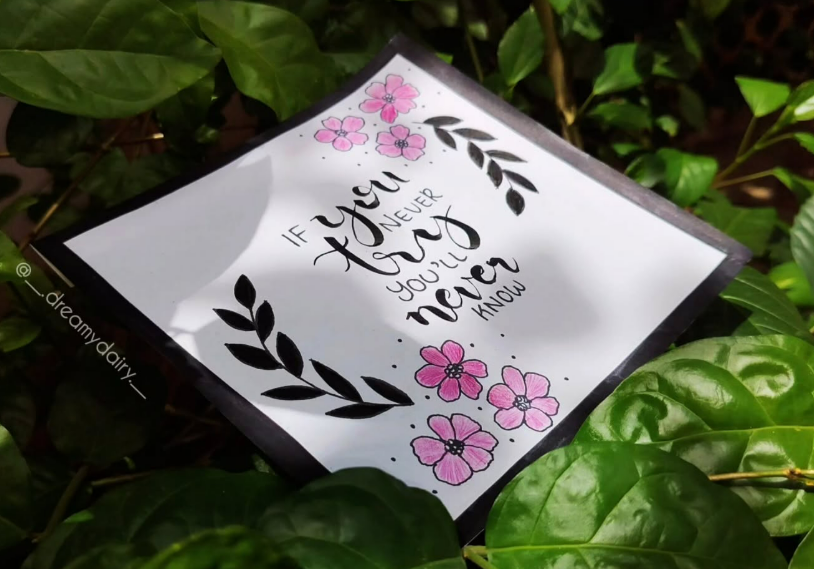 IF you NEVER
try
YOU'LL
never
KNOW
@__.dreamydairy.__